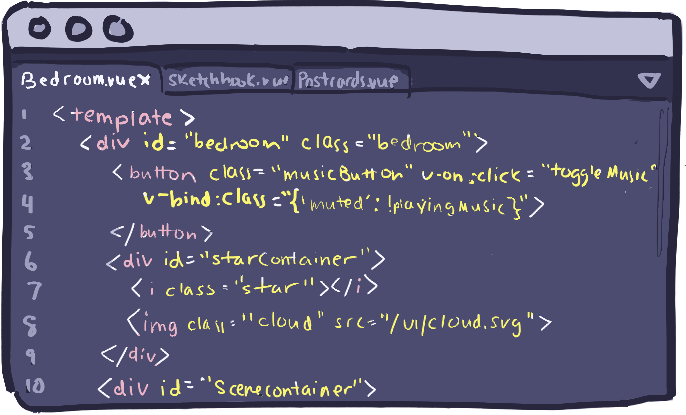 Bedroom.vue x Sketchbook.vue Postcards.vue
1 <template>
2 <div id="bedroom" class="bedroom">
3 <button class="musicButton" v-on:click="toggleMusic"
4 v-bind:class="{'muted': !playingMusic}">
5 </button>
6 <div id="starContainer">
7 <i class="star"></i>
8 <img class="cloud" src="/ui/cloud.svg">
9 </div>
10 <div id="Scenecontainer">